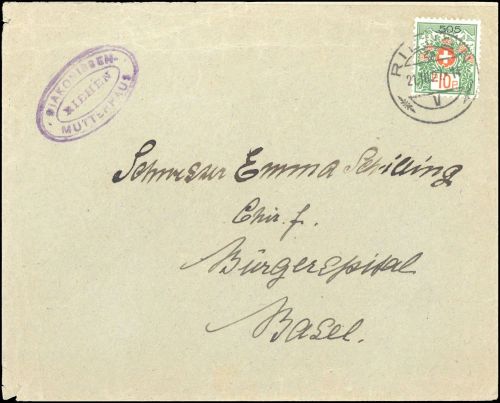 DIAKONISSEN-
RIEHEN
MUTTERHAUS
505
10
Schwester Emma Schilling
Chir. f.
Bürgerspital
Basel.